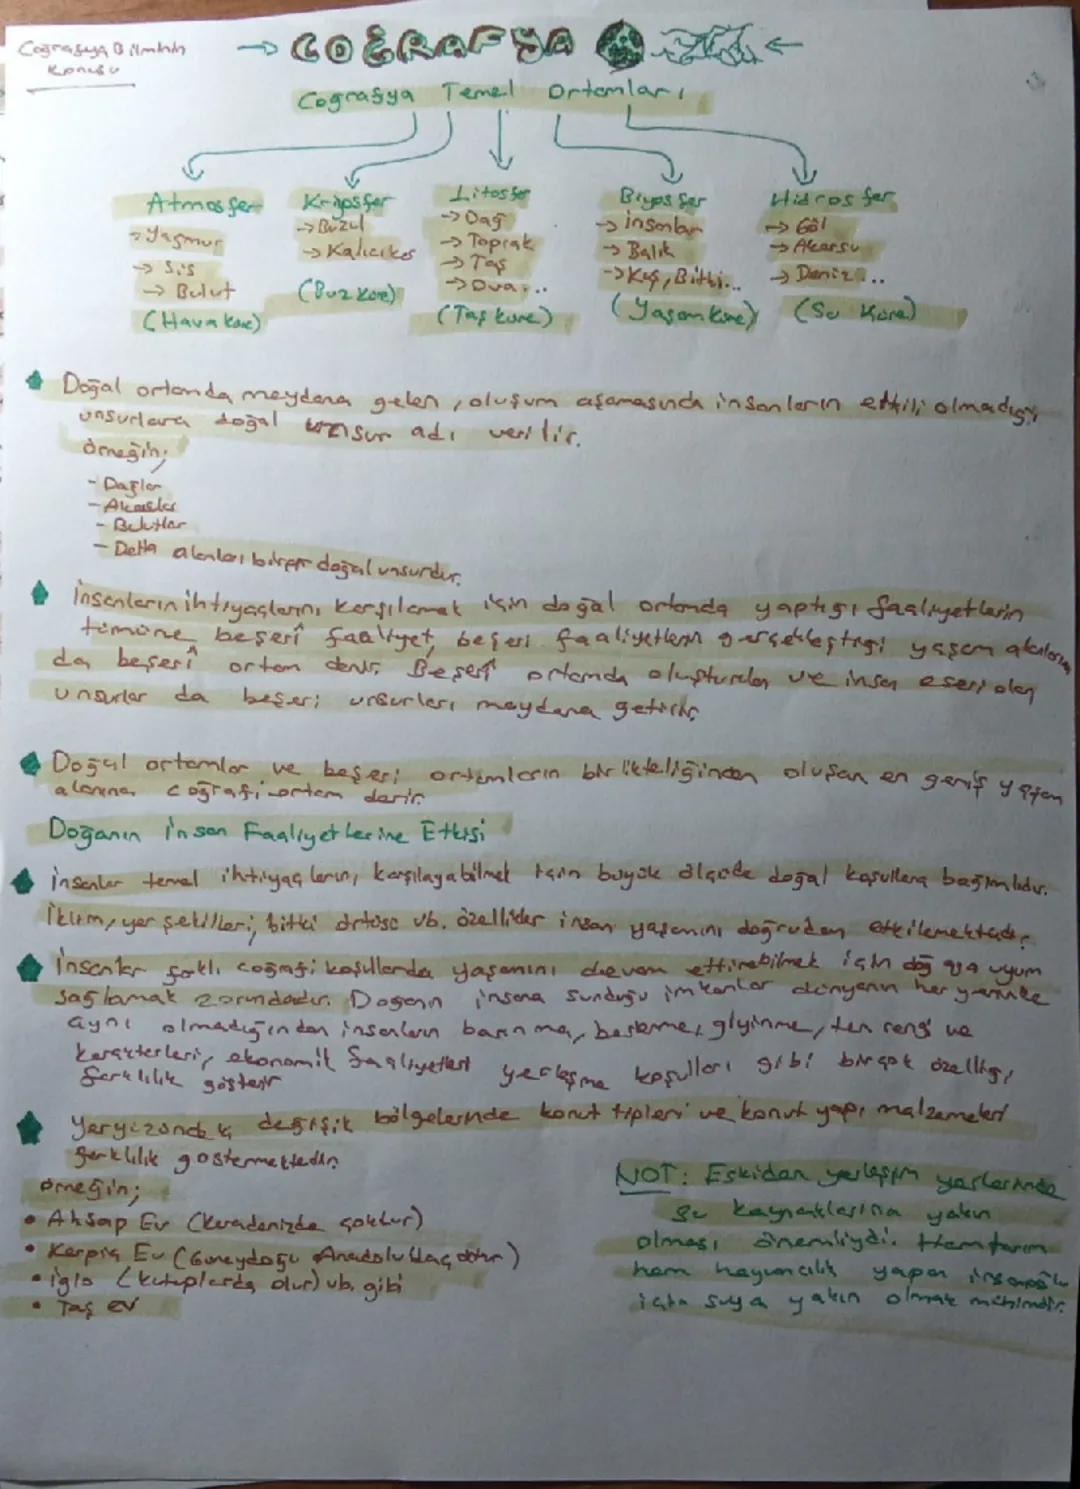 Coğrafya Biliminin
Konusu
→ COĞRAFYA ←
Coğrafya Temel Ortamları
Atmosfer
→ Yağmur
→ Sis
→ Bulut
(Hava küre)
Kriyosfer
→ Buzul
→ Kalıcı kar
(Buz Küre)
Litosfer
→ Dağ
→ Toprak
→ Taş
→ Ova...
(Taş küre)
Biyosfer
→ insanlar
→ Balık
→ Kuş, Bitki...
(Yaşam küre)
Hidrosfer
→ Göl
→ Akarsu
→ Deniz...
(Su Küre)
Doğal ortamda meydana gelen, oluşum aşamasında insanların etkili olmadığı
unsurlara doğal unsur adı verilir.
örneğin;
- Dağlar
- Akarsular
- Bulutlar
- Delta alanları birer doğal unsurdur.
İnsanların ihtiyaçlarını karşılamak için doğal ortamda yaptığı faaliyetlerin
tümüne beşerî faaliyet, beşeri faaliyetlerin gerçekleştiği yaşam alanlarına
da beşerî ortam denir. Beşerî ortamda oluşturulan ve insan eseri olan
unsurlar da beşeri unsurları meydana getirir.
Doğal ortamlar ve beşeri ortamların birlikteliğinden oluşan en geniş yaşam
alanına coğrafi ortam denir.
Doğanın İnsan Faaliyetlerine Etkisi
İnsanlar temel ihtiyaçlarını karşılayabilmek için büyük ölçüde doğal koşullara bağımlıdır.
İklim, yer şekilleri, bitki örtüsü vb. özellikler insan yaşamını doğrudan etkilemektedir.
İnsanlar farklı coğrafi koşullarda yaşamını devam ettirebilmek için doğaya uyum
sağlamak zorundadır. Doğanın insana sunduğu imkanlar dünyanın her yerinde
aynı olmadığından insanların barınma, beslenme, giyinme, ten rengi ve
karakterleri, ekonomik faaliyetleri yerleşme koşulları gibi birçok özelliği
farklılık gösterir
Yeryüzündeki değişik bölgelerinde konut tipleri ve konut yapı malzemeleri
farklılık göstermektedir.
örneğin;
• Ahşap Ev (Karadenizde çoktur)
• Kerpiç Ev (Güneydoğu Anadolu'da çoktur)
• iglo (kutuplarda olur) vb. gibi
• Taş ev
NOT: Eskiden yerleşim yerlerinde
su kaynaklarına yakın
olması önemliydi. Hem tarım
hem hayvancılık yapan insanoğlu
için suya yakın olmak mühimdir.